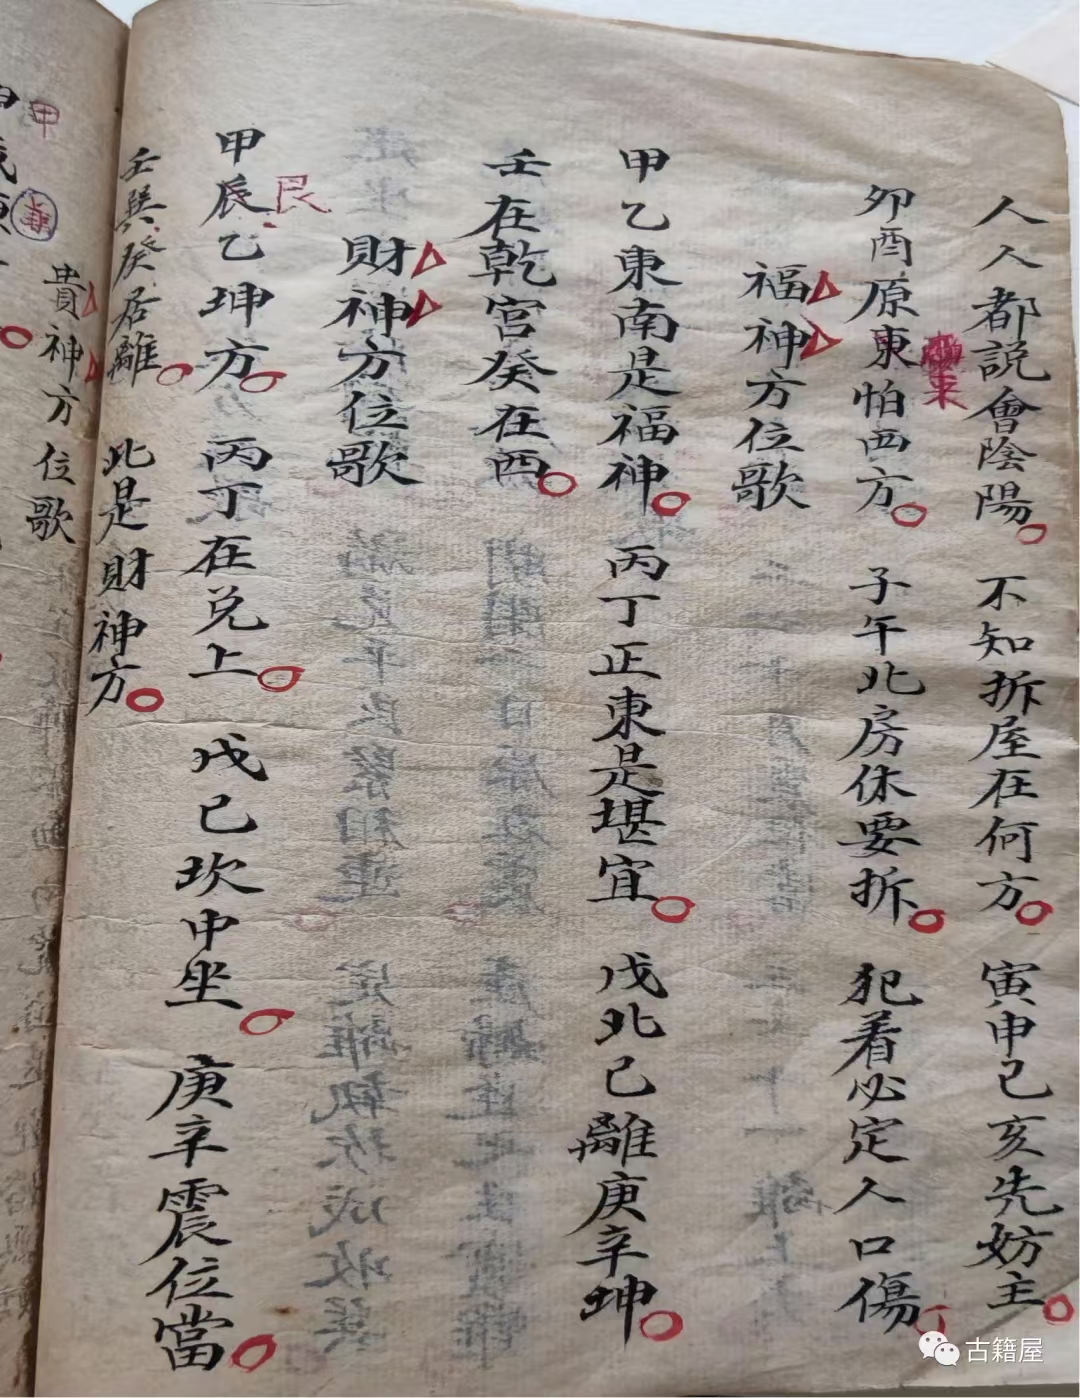 人人都説會陰陽 不知拆屋在何方 寅申已亥先妨主
卯酉原東怕西方 子午北房休要拆 犯着必定人口傷
來
福神方位歌
甲乙東南是福神 丙丁正東是堪宜 戊北己離庚辛坤
壬在乾宮癸在酉
財神方位歌
甲辰乙坤方 丙丁在兑上 戊已坎中坐 庚辛震位當
艮
壬巽癸居離 此是財神方
貴神方位歌
甲
古籍屋